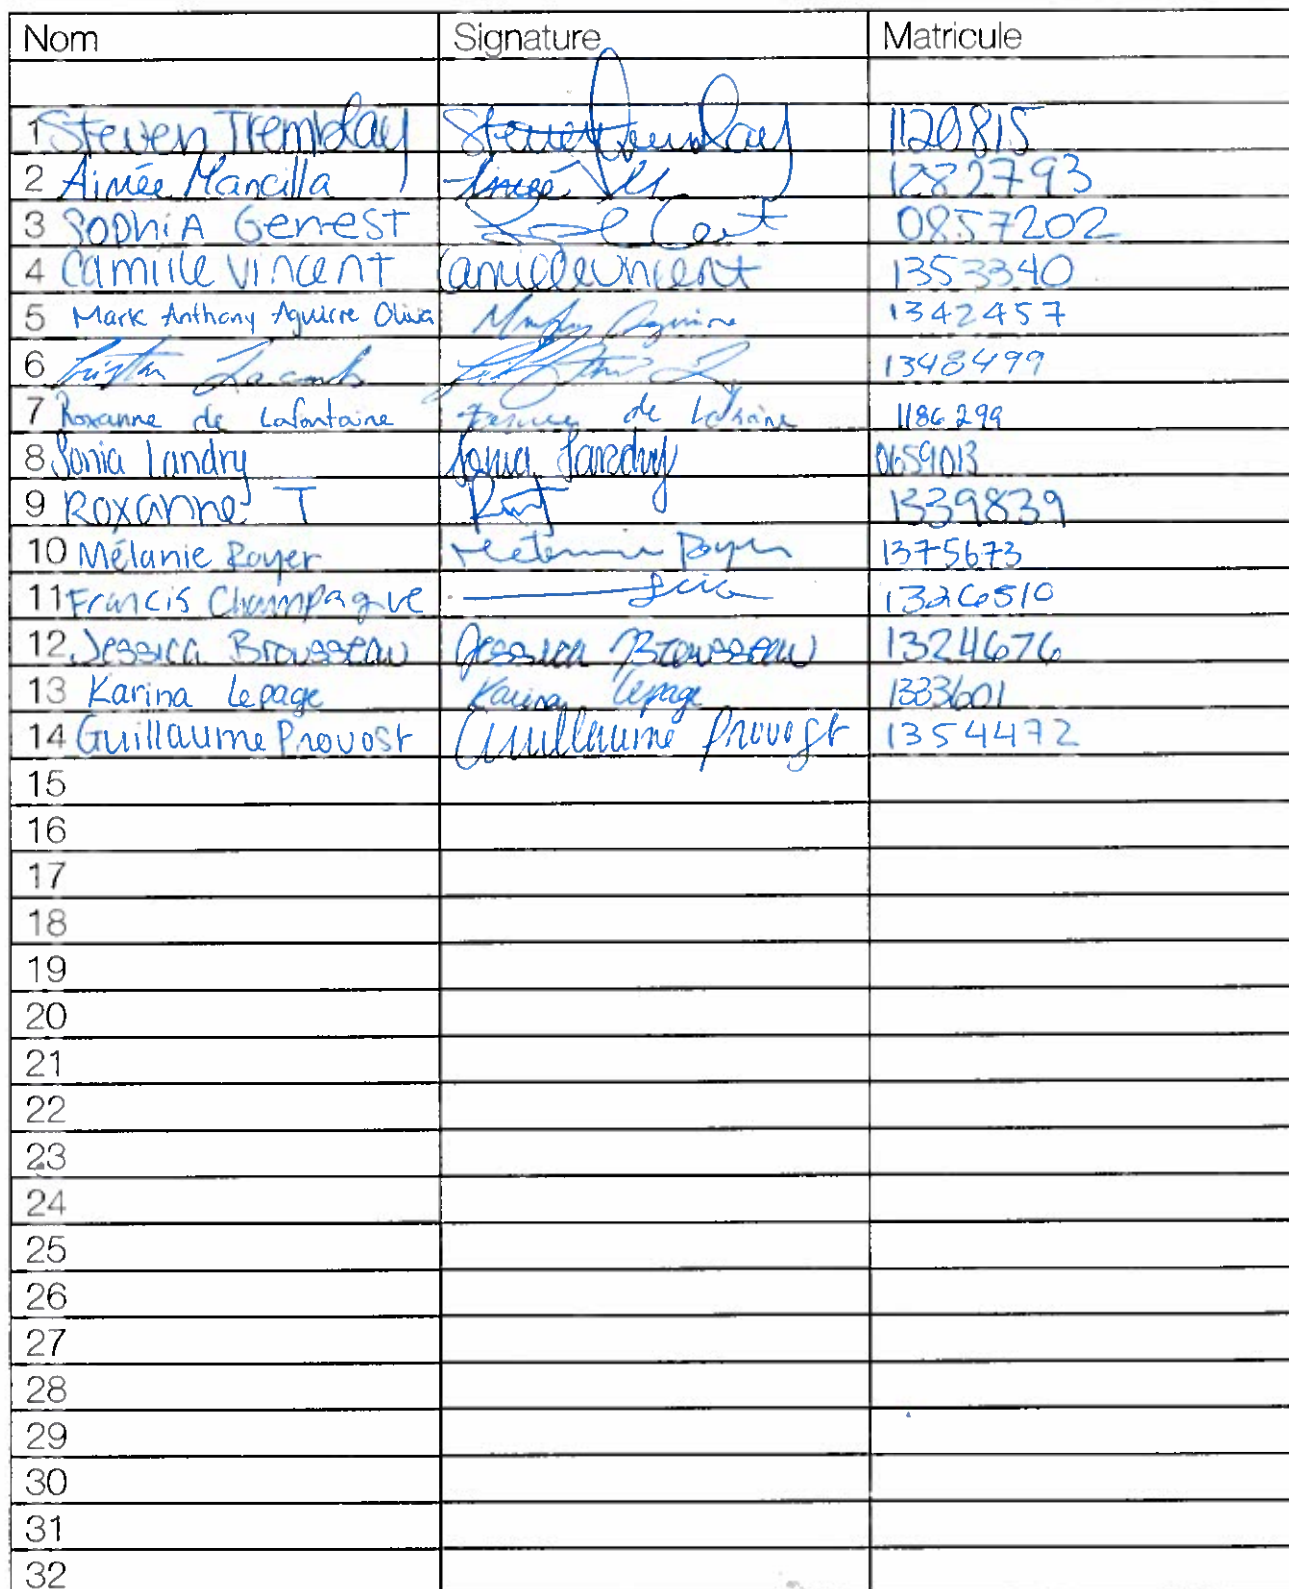 Nom Signature Matricule
1 Steven Tremblay Steven Tremblay 1120815
2 Aimée Mancilla Aimée 1282793
3 Sophia Genest 0857202
4 Camille Vincent Camille Vincent 1353340
5 Mark Anthony Aguirre Oliva Aguirre 1342457
6 Tristan Lacombe 1348499
7 Roxanne de Lafontaine de 1186299
8 Sonia Landry Sonia Landry 0659013
9 Roxanne T 1339839
10 Mélanie Royer Mélanie Royer 1375673
11 Francis Champagne 1326510
12 Jessica Brousseau Jessica Brousseau 1324676
13 Karina Lepage Karina Lepage 1333601
14 Guillaume Provost Guillaume Provost 1354472
15
16
17
18
19
20
21
22
23
24
25
26
27
28
29
30
31
32